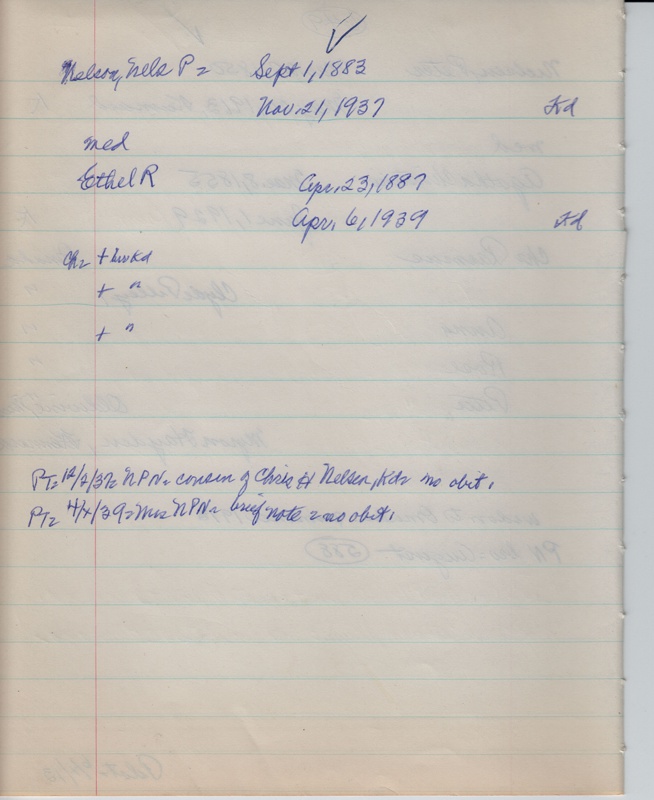 Nelson, Nels P = Sept 1, 1883
Nov. 21, 1937 Kd
med
Ethel R Apr. 23, 1887
Apr. 6, 1939 Kd
Ch = + bur Kd
+ "
+ "
PT = 12/2/37 = NPN = cousin of Chris H Nelsen, Kd = no obit.
PT = 4/ /39 = Mrs NPN = brief note = no obit.